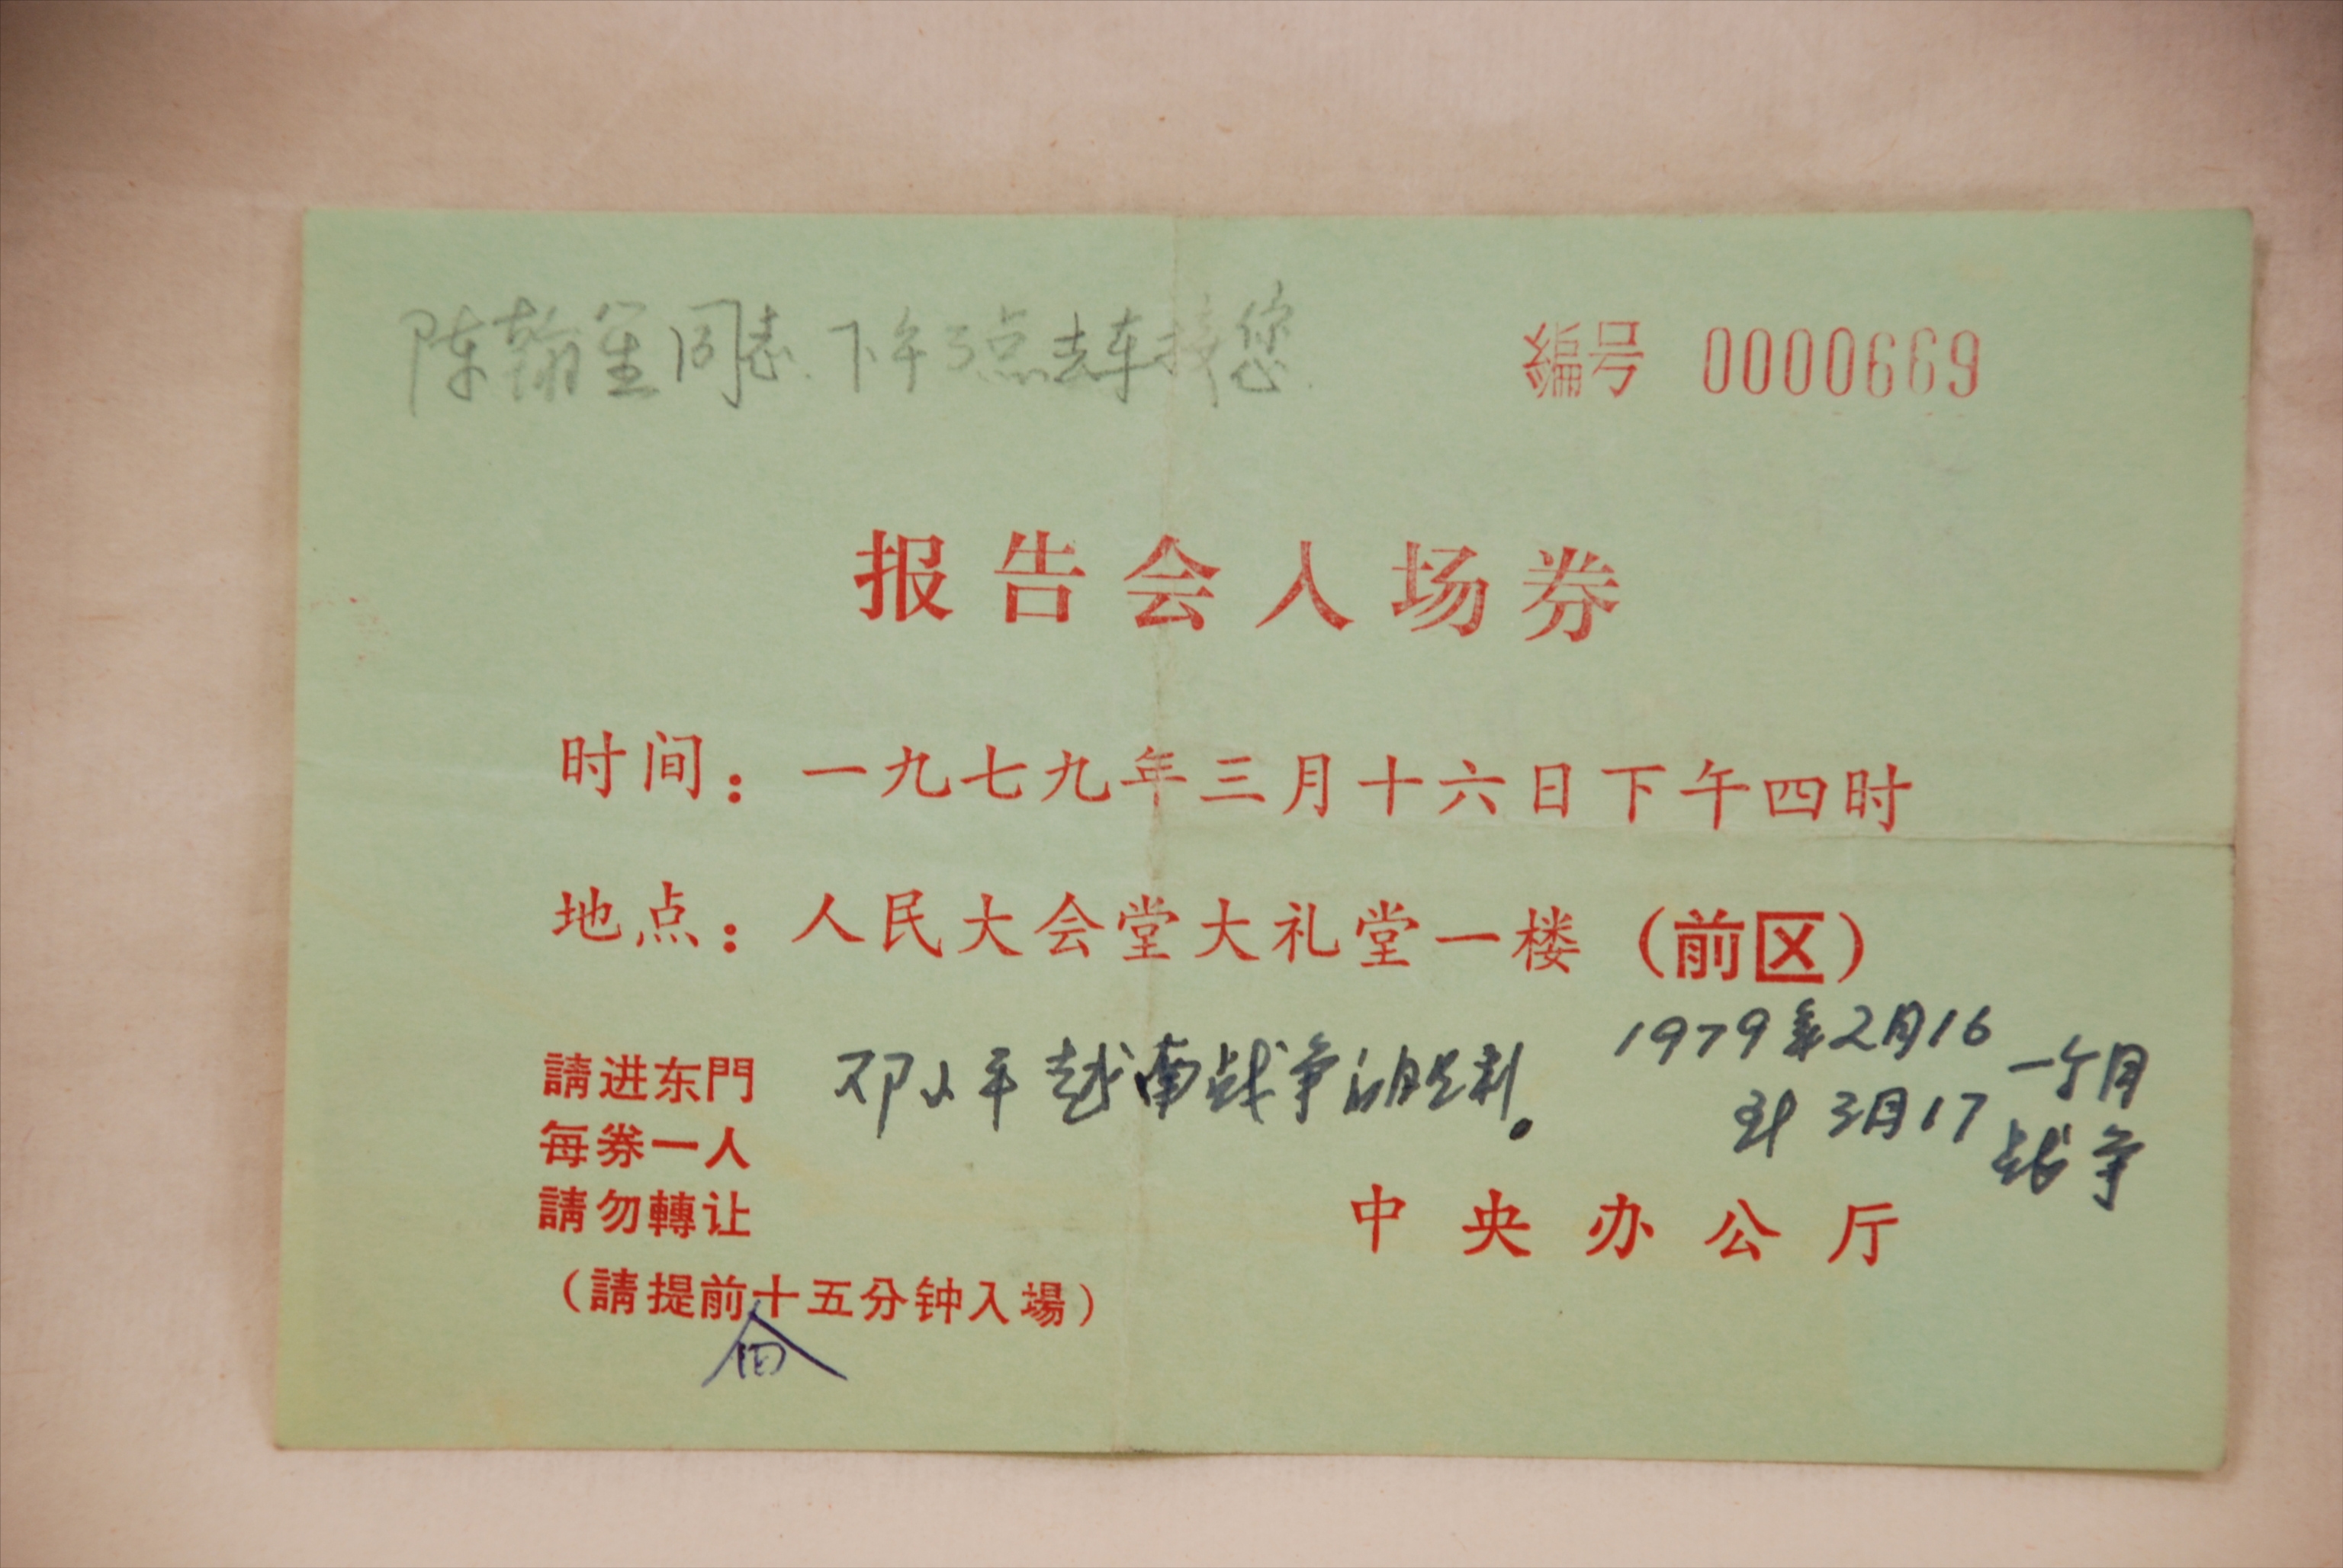 陈翰笙同志.下午3点去车接您.
編号 0000669
报告会入场券
时间：一九七九年三月十六日下午四时
地点：人民大会堂大礼堂一楼（前区）
請进东門
每券一人
請勿轉让
（請提前十五分钟入場）
邓小平越南战争的胜利。
1979年2月16
到3月17
一个月
战争
中央办公厅